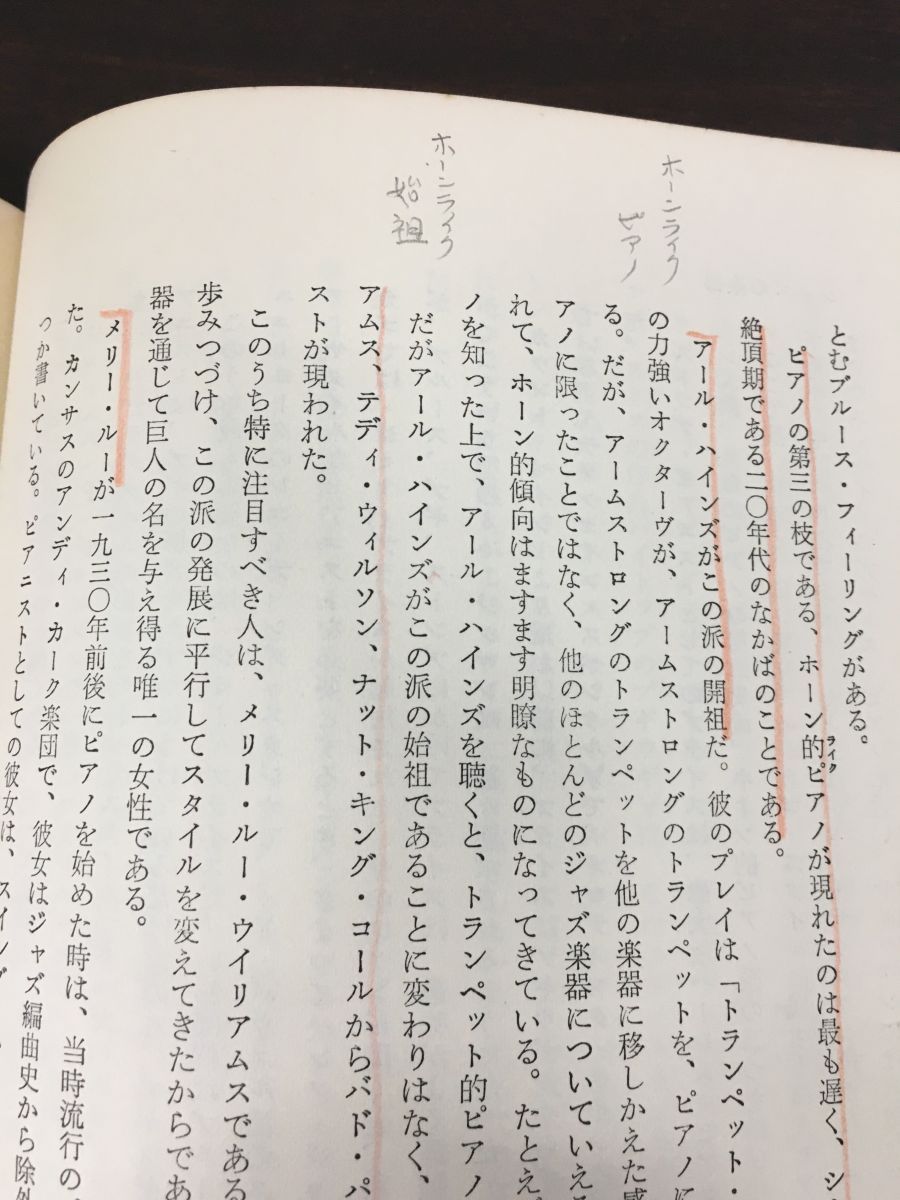 ホーンライク
ピアノ
ホーンライク
始祖
とむブルース・フィーリングがある。
ピアノの第三の枝である、ホーン的ピアノが現れたのは最も遅く、シ
ライク
絶頂期である二〇年代のなかばのことである。
アール・ハインズがこの派の開祖だ。彼のプレイは「トランペット・
の力強いオクターヴが、アームストロングのトランペットを、ピアノに
る。だが、アームストロングのトランペットを他の楽器に移しかえた感
アノに限ったことではなく、他のほとんどのジャズ楽器についていえる
れて、ホーン的傾向はますます明瞭なものになってきている。たとえ
ノを知った上で、アール・ハインズを聴くと、トランペット的ピアノ
だがアール・ハインズがこの派の始祖であることに変わりはなく、
アムス、テディ・ウィルソン、ナット・キング・コールからバド・パ
ストが現われた。
このうち特に注目すべき人は、メリー・ルー・ウイリアムスである
歩みつづけ、この派の発展に平行してスタイルを変えてきたからであ
器を通じて巨人の名を与え得る唯一の女性である。
メリー・ルーが一九三〇年前後にピアノを始めた時は、当時流行の
た。カンサスのアンディ・カーク楽団で、彼女はジャズ編曲史から除外
つか書いている。ピアニストとしての彼女は、スイング